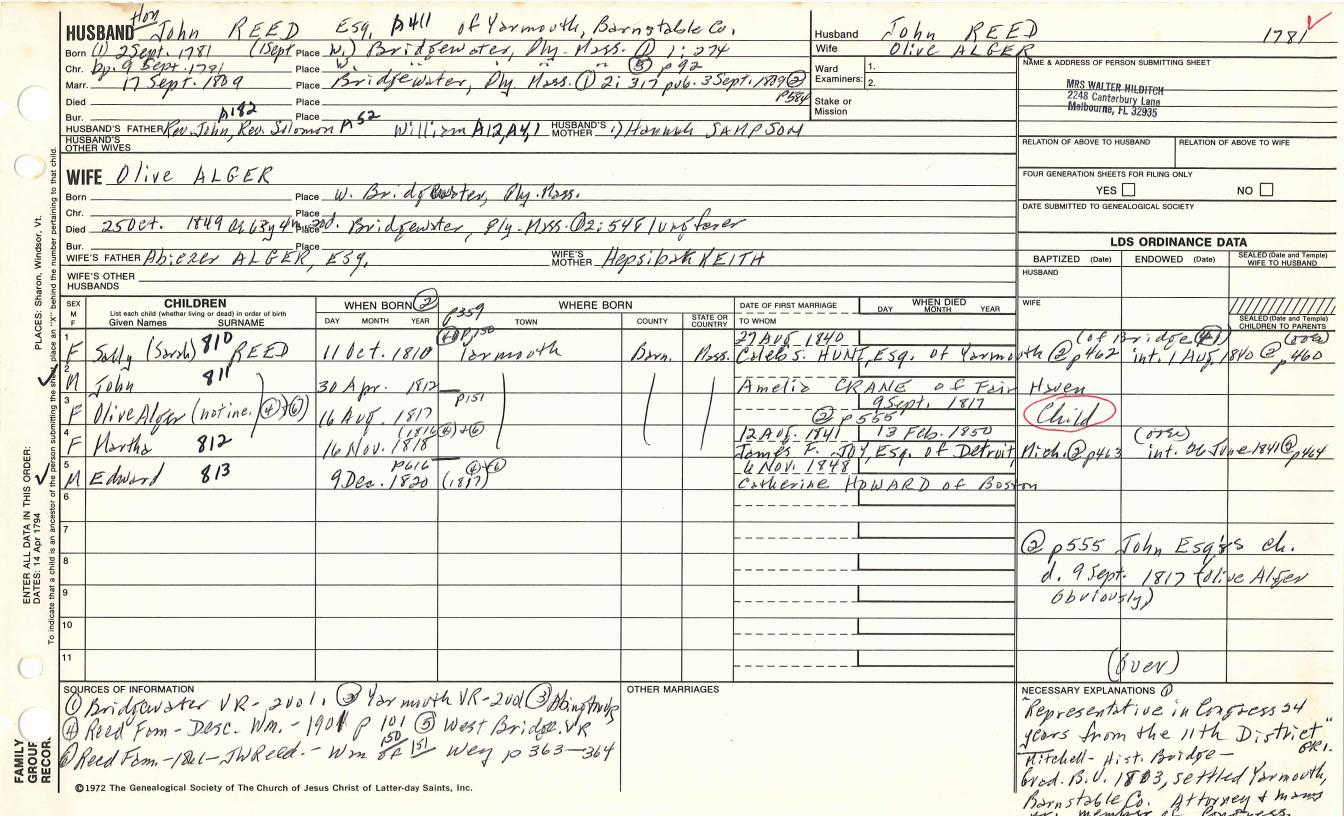 Hon
HUSBAND John REED Esq. A411 of Yarmouth, Barnstable Co.
Born (1) 2 Sept. 1781 (1 Sept Place W.) Bridgewater, Ply. Mass. ① 1: 274
Chr. bp. 9 Sept. 1781 Place W. " " " ⑤ p92
Marr. 17 Sept. 1809 Place Bridgewater, Ply. Mass. ① 2: 317 pub. 3 Sept. 1809 ②
p584
Died Place
Bur. Place
A182
HUSBAND'S FATHER Rev. John, Rev. Solomon A52 William A12, A4, 1 HUSBAND'S MOTHER 1) Hannah SAMPSON
HUSBAND'S OTHER WIVES
Husband John REED 1781
Wife Olive ALGER
Ward Examiners: 1.
2.
Stake or Mission
NAME & ADDRESS OF PERSON SUBMITTING SHEET
MRS WALTER HILDITCH
2248 Canterbury Lane
Melbourne, FL 32935
RELATION OF ABOVE TO HUSBAND RELATION OF ABOVE TO WIFE
FOUR GENERATION SHEETS FOR FILING ONLY
YES NO
DATE SUBMITTED TO GENEALOGICAL SOCIETY
WIFE Olive ALGER
Born Place W. Bridgewater, Ply. Mass.
Chr. Place
Died 25 Oct. 1849 Place Bridgewater, Ply. Mass. ① 2: 548 lung fever
Bur. Place
WIFE'S FATHER Abiezer ALGER, Esq. WIFE'S MOTHER Hepsibah KEITH
WIFE'S OTHER HUSBANDS
LDS ORDINANCE DATA
BAPTIZED (Date) ENDOWED (Date) SEALED (Date and Temple) WIFE TO HUSBAND
HUSBAND
WIFE
SEALED (Date and Temple) CHILDREN TO PARENTS
SEX M F CHILDREN WHEN BORN ② WHERE BORN DATE OF FIRST MARRIAGE WHEN DIED
List each child (whether living or dead) in order of birth
Given Names SURNAME DAY MONTH YEAR TOWN COUNTY STATE OR COUNTRY TO WHOM DAY MONTH YEAR
p359
④ p150
27 Aug. 1840 (of Bridge ④) (over)
1 F Sally (Sarah) 810 REED 11 Oct. 1810 Yarmouth Barn. Mass. Caleb S. HUNT, Esq. of Yarmouth ② p462 int. 1 Aug. 1840 ② p460
2 M John 811 30 Apr. 1812 Amelia CRANE of Fair Haven
p151
9 Sept. 1817
3 F Olive Alger (not inc. ④ + ⑥) 16 Aug. 1817 ② p555 Child
(1816 ④) + ⑥ 12 Aug. 1841 13 Feb. 1850 (over)
4 F Martha 812 16 Nov. 1818 James F. JOY, Esq. of Detroit, Mich. ② p463 int. 26 June 1841 ② p464
p616 ④ + ⑥ 6 Nov. 1848
5 M Edward 813 9 Dec. 1820 (1817) Catherine HOWARD of Boston
6
7
8
9
10
11
② p555 John Esq's ch.
d. 9 Sept. 1817 (Olive Alger
Obviously)
(over)
SOURCES OF INFORMATION
① Bridgewater VR - 2 vol. ② Yarmouth VR - 2 vol ③ Abington VR
④ Reed Fam - Desc. Wm. - 1901 p 101 ⑤ West Bridge. VR
150
151
⑥ Reed Fam. - 1861 - JW Reed. - Wm of Wey p 363-364
OTHER MARRIAGES
NECESSARY EXPLANATIONS ①
"Representative in Congress 24
years from the 11th District"
Mitchell - Hist. Bridge -
Grad. B.U. 1803, settled Yarmouth,
Barnstable Co. Attorney & many
yr. member of Congress.
©1972 The Genealogical Society of The Church of Jesus Christ of Latter-day Saints, Inc.
FAMILY GROUP RECOR.
ENTER ALL DATA IN THIS ORDER:
DATES: 14 Apr 1794
PLACES: Sharon, Windsor, Vt.
To indicate that a child is an ancestor of the person submitting the sheet, place an "X" behind the number pertaining to that child.